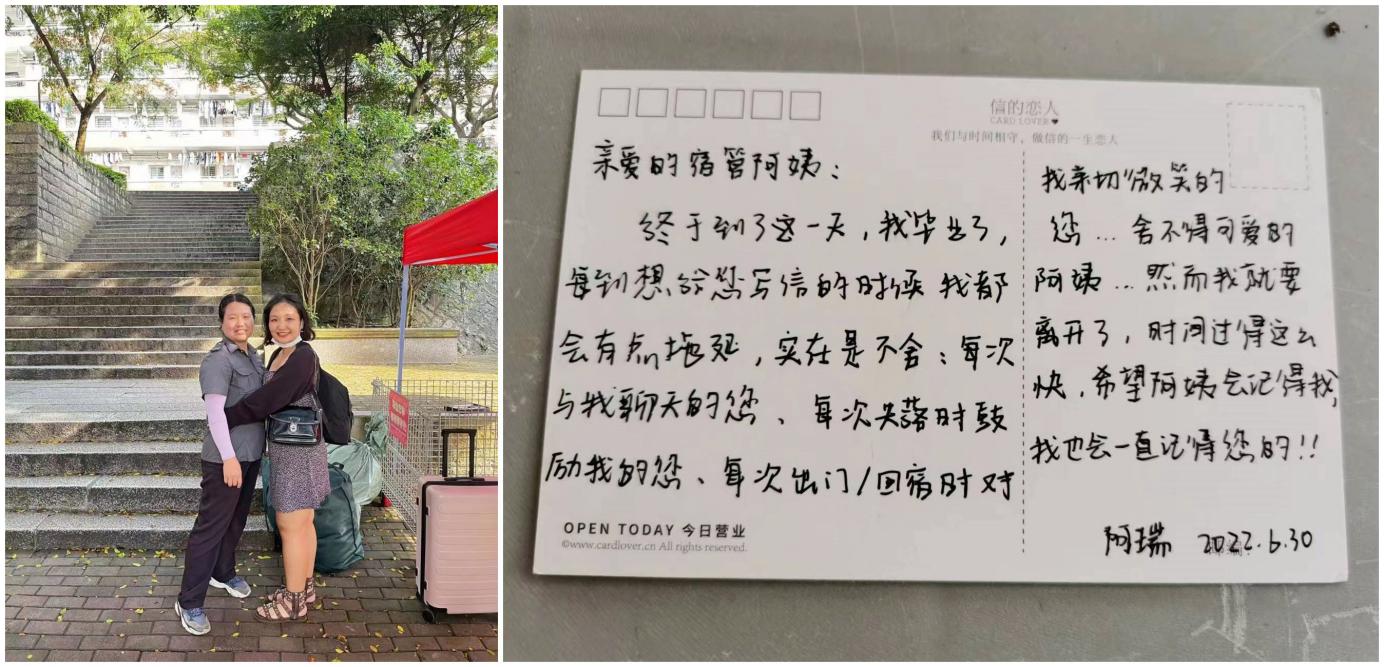 信的恋人
CARD LOVER
我们与时间相守，做信的一生恋人
亲爱的宿管阿姨：
终于到了这一天，我毕业了，
每到想给您写信的时候 我都
会有点拖延，实在是不舍：每次
与我聊天的您、每次失落时鼓
励我的您、每次出门/回宿时对
我亲切微笑的
您...舍不得可爱的
阿姨...然而我就要
离开了，时间过得这么
快，希望阿姨会记得我，
我也会一直记得您的！！
阿瑞 2022.6.30
OPEN TODAY 今日营业
©www.cardlover.cn All rights reserved.